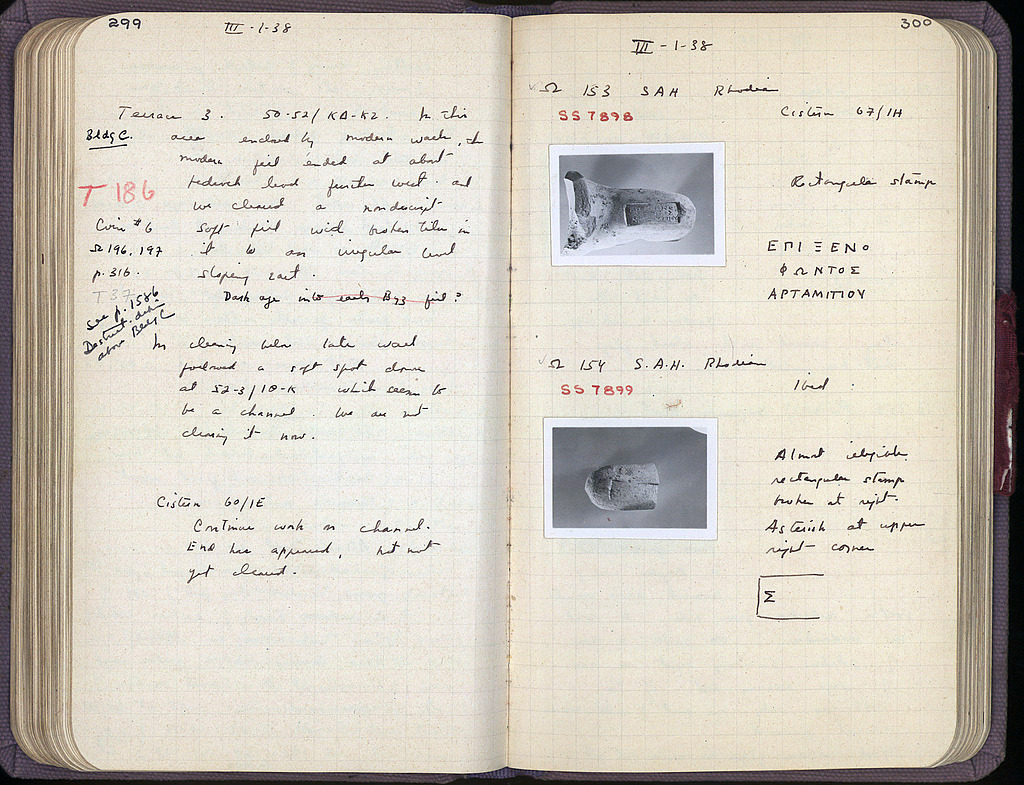 299
III - 1-38
Terrace 3. 50-52/ ΚΔ-ΚΖ. In this
Bldg C.
area enclosed by modern walls, the
modern fill ended at about
T 186
bedrock level further west and
we cleared a nondescript
Coin #6
soft fill with broken tiles in
Ω 196, 197
it to an irregular level
p. 316.
sloping east.
T 37
Dark age into early Byz fill?
See p. 1586
Destruct. debris
above Bldg C
In cleaning below late wall
followed a soft spot down
at 52-3/ ΙΘ-Κ which seems to
be a channel. We are not
clearing it now.
Cistern 60/ΙΕ
Continue work on channel.
End has appeared, but not
yet cleared.
300
III - 1-38
√Ω 153 SAH Rhodian
SS 7898
Cistern 67/ΙΗ
Rectangular stamp
ΕΠΙ ΞΕΝΟ
ΦΩΝΤΟΣ
ΑΡΤΑΜΙΤΙΟΥ
√Ω 154 S.A.H. Rhodian
SS 7899
Ibid.
Almost illegible
rectangular stamp
broken at right.
Asterisk at upper
right corner
Σ